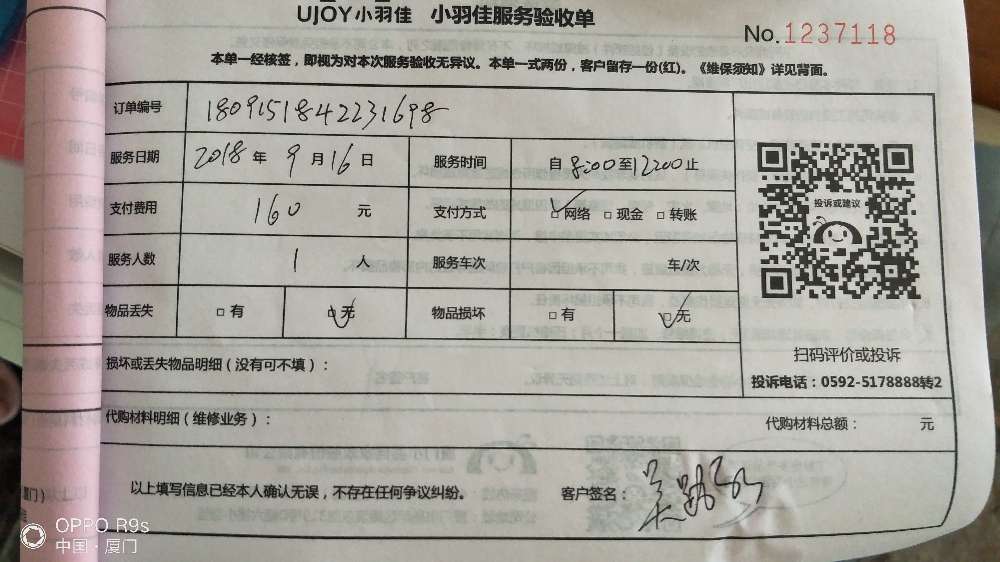 UJOY小羽佳 小羽佳服务验收单
No.1237118
本单一经核签，即视为对本次服务验收无异议。本单一式两份，客户留存一份(红)。《维保须知》详见背面。
订单编号 18091518422231698
服务日期 2018年9月16日 服务时间 自8:00至12:00止
支付费用 160元 支付方式 □网络 □现金 □转账
服务人数 1人 服务车次 车/次
物品丢失 □有 □无 物品损坏 □有 □无
投诉或建议
扫码评价或投诉
投诉电话：0592-5178888转2
损坏或丢失物品明细（没有可不填）：
代购材料明细（维修业务）： 代购材料总额： 元
以上填写信息已经本人确认无误，不存在任何争议纠纷。 客户签名：
OPPO R9s
中国·厦门